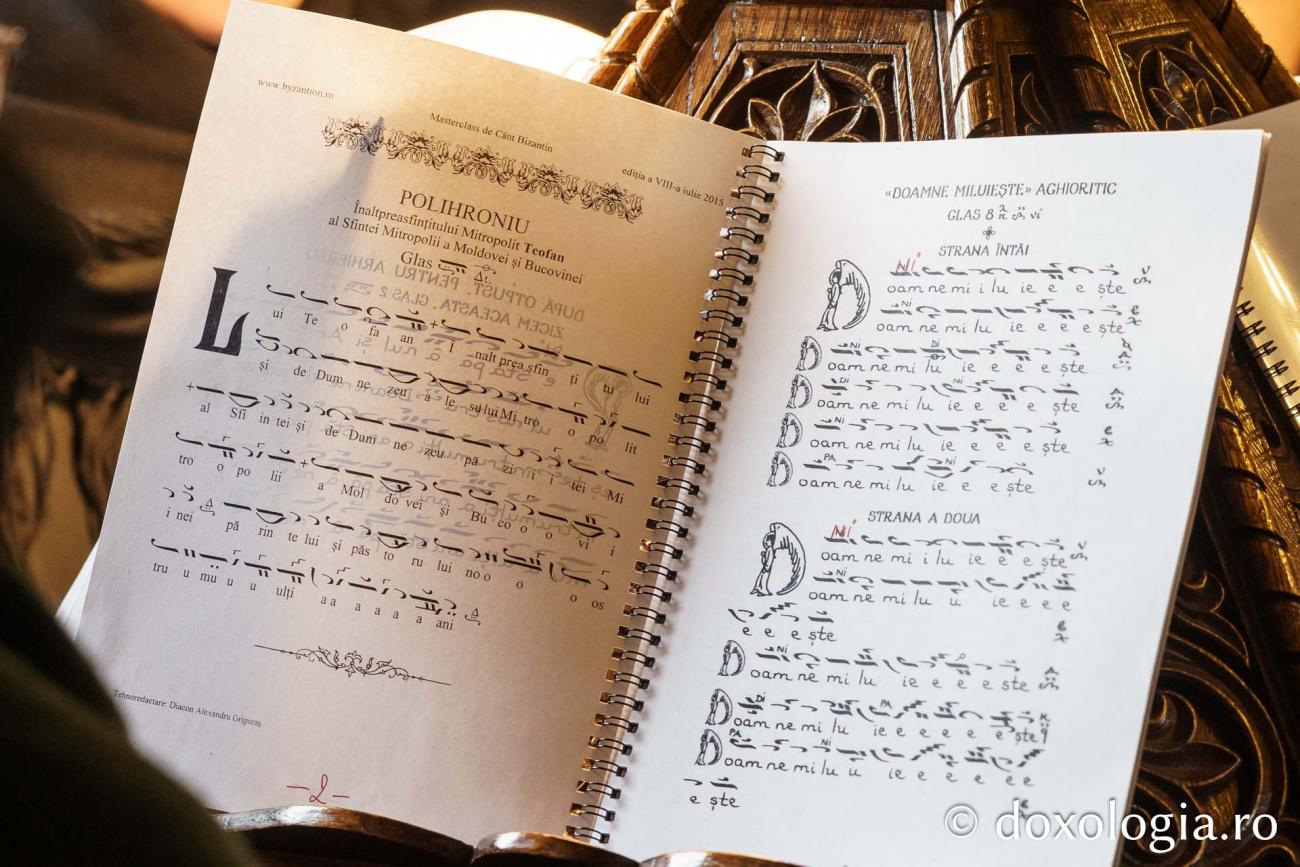 www.byzantion.ro
Masterclass de Cânt Bizantin
ediția a VIII-a iulie 2015
POLIHRONIU
Înaltpreasfințitului Mitropolit Teofan
al Sfintei Mitropolii a Moldovei și Bucovinei
Glas
DUPĂ OTPUST PENTRU ARHIEREU
ZICEM ACEASTA, GLAS 2
L ui Te o fa an î nalt prea sfin ți tu lui
și de Dum ne zeu a le su lui Mi tro o po lit
al Sfi in tei și de Dum ne zeu pă zi i i tei Mi
tro o po lii a Mol do vei și Bu co o o vi i
i nei pă rin te lui și păs to ru lui no o o o os
tru u mu u u ulți a a a a a a ani
Tehnoredactare: Diacon Alexandru Grigoraș
-2-
«DOAMNE MILUIEȘTE» AGHIORITIC
GLAS 8 ní
STRANA ÎNTÂI
Ni
D oam ne mi i lu ie e e ește
Ni
oam ne mi lu ie e e e ește
Ni Di
D oam ne mi lu ie e e ește
Di Ni
D oam ne mi lu ie e e e ește
Ni
D oam ne mi lu ie e e e ește
PA Ni
D oam ne mi lu ie e e ește
STRANA A DOUA
Ni
D oam ne mi i lu ie e e ește
Ni
oam ne mi lu u ie e e e
e e e ește
Ni
D oam ne mi lu ie e e e ște
Di PA
D oam ne mi lu ie e e e e ește
PA Ni
D oam ne mi lu u ie e e e e e
e ște
© doxologia.ro